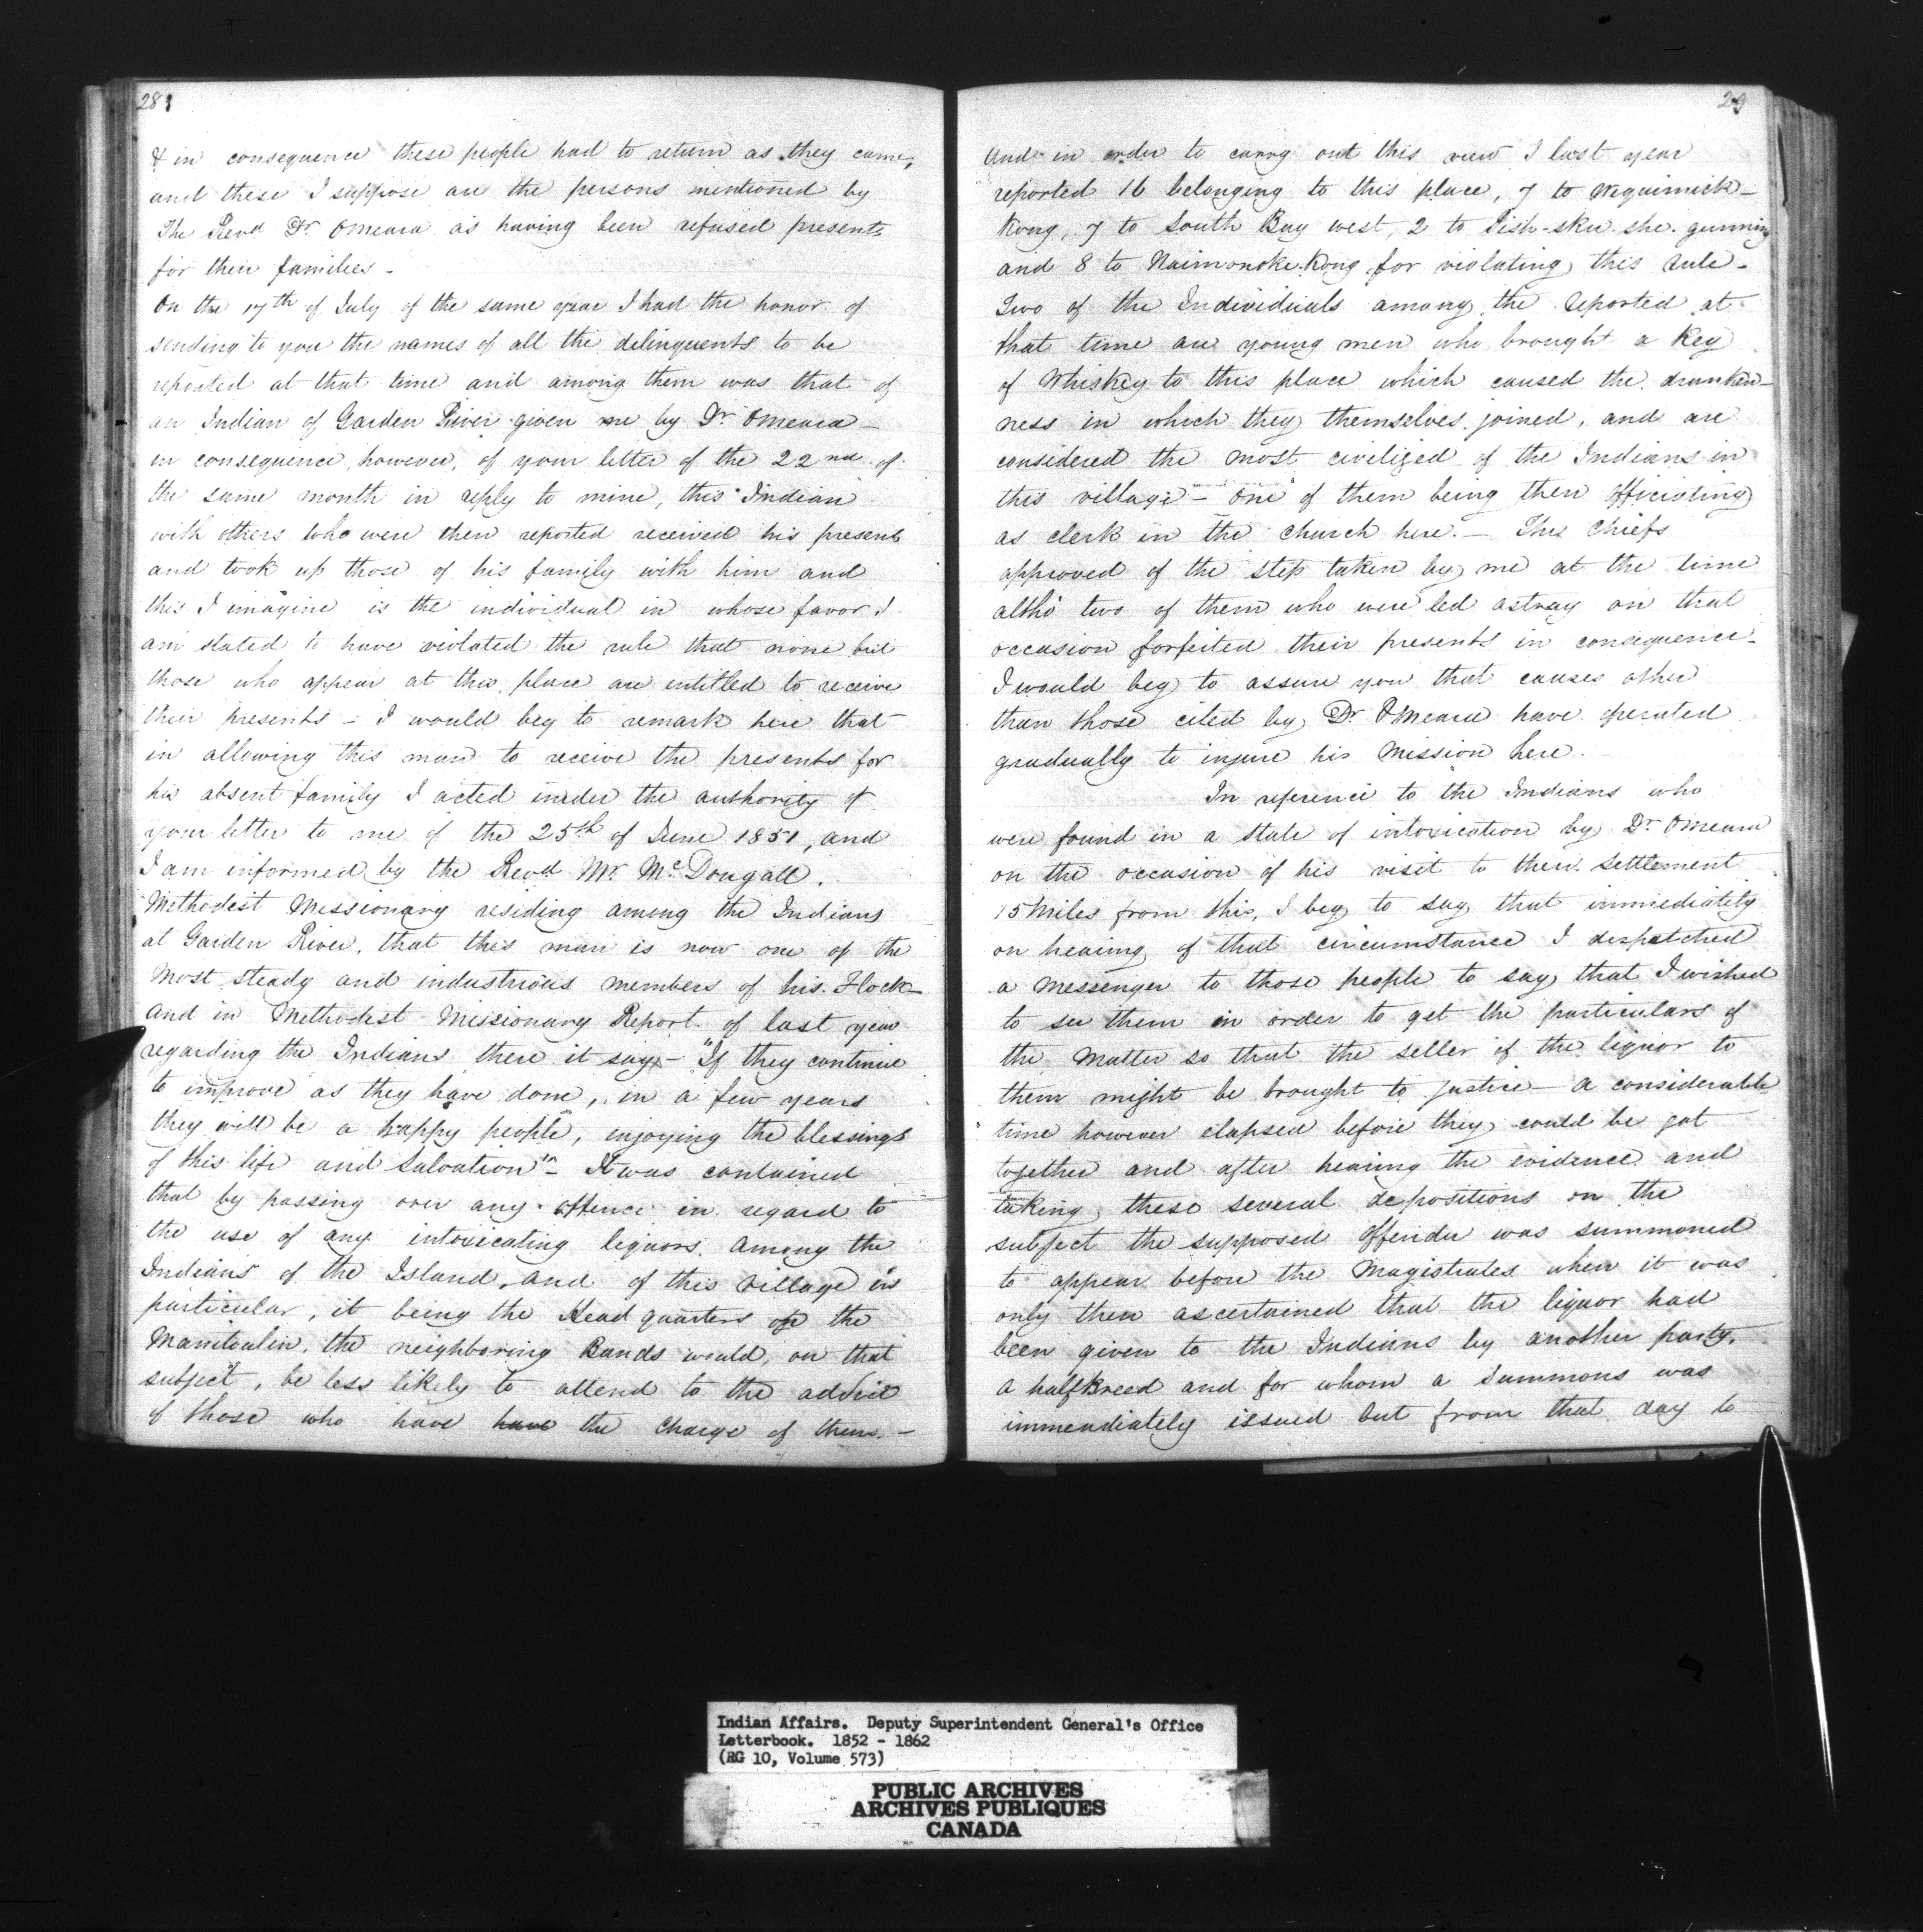 28
& in consequence these people had to return as they came,
and these I suppose are the persons mentioned by
The Revd. Dr. OMeara as having been refused presents
for their families -
On the 17th of July of the same year I had the honor of
sending to you the names of all the delinquents to be
reported at that time and among them was that of
an Indian of Garden River given me by Dr. OMeara -
in consequence, however, of your letter of the 22nd of
the same month in reply to mine, this Indian
with others who were then reported received his presents
and took up those of his family with him and
this I imagine is the individual in whose favor I
am stated to have violated the rule that none but
those who appear at this place are entitled to receive
their presents - I would beg to remark here that
in allowing this man to receive the presents for
his absent family I acted under the authority of
your letter to me of the 25th of June 1851, and
I am informed by the Revd. Mr. McDougall,
Methodist Missionary residing among the Indians
at Garden River, that this man is now one of the
most steady and industrious members of his Flock -
and in Methodist Missionary Report of last year
regarding the Indians there it says - "If they continue
to improve as they have done, in a few years
they will be a happy people, enjoying the blessings
of this life and Salvation" - It was contained
that by passing over any offence in regard to
the use of any intoxicating liquors among the
Indians of the Island, and of this village in
particular, it being the Head quarters of the
Manitoulin, the neighboring Bands would, on that
subject, be less likely to attend to the advice
of those who have have the charge of them. -
29
And in order to carry out this view I last year
reported 16 belonging to this place, 7 to Wequimick-
Kong, 7 to South Bay west, 2 to
and 8 to Naimonoke.Kong for violating this rule -
Two of the Individuals among the reported at
that time are young men who brought a Keg
of Whiskey to this place which caused the drunken-
ness in which they themselves joined, and are
considered the most civilized of the Indians in
this village - one of them being then officiating
as clerk in the church here. - The Chiefs
approved of the step taken by me at the time
altho' two of them who were led astray on that
occasion forfeited their presents in consequence -
I would beg to assure you that causes other
than those cited by Dr. OMeara have operated
gradually to injure his Mission here. -
In reference to the Indians who
were found in a state of intoxication by Dr. OMeara
on the occasion of his visit to their settlement
15 Miles from this, I beg to say that immediately
on hearing of that circumstance I despatched
a Messenger to those people to say that I wished
to see them in order to get the particulars of
the matter so that the seller of the liquor to
them might be brought to justice - a considerable
time however elapsed before they could be got
together and after hearing the evidence and
taking these several depositions on the
subject the supposed offender was summoned
to appear before the Magistrates when it was
only then ascertained that the liquor had
been given to the Indians by another party,
a halfbreed and for whom a Summons was
immediately issued but from that day to
Indian Affairs. Deputy Superintendent General's Office
Letterbook. 1852 - 1862
(RG 10, Volume 573)
PUBLIC ARCHIVES
ARCHIVES PUBLIQUES
CANADA